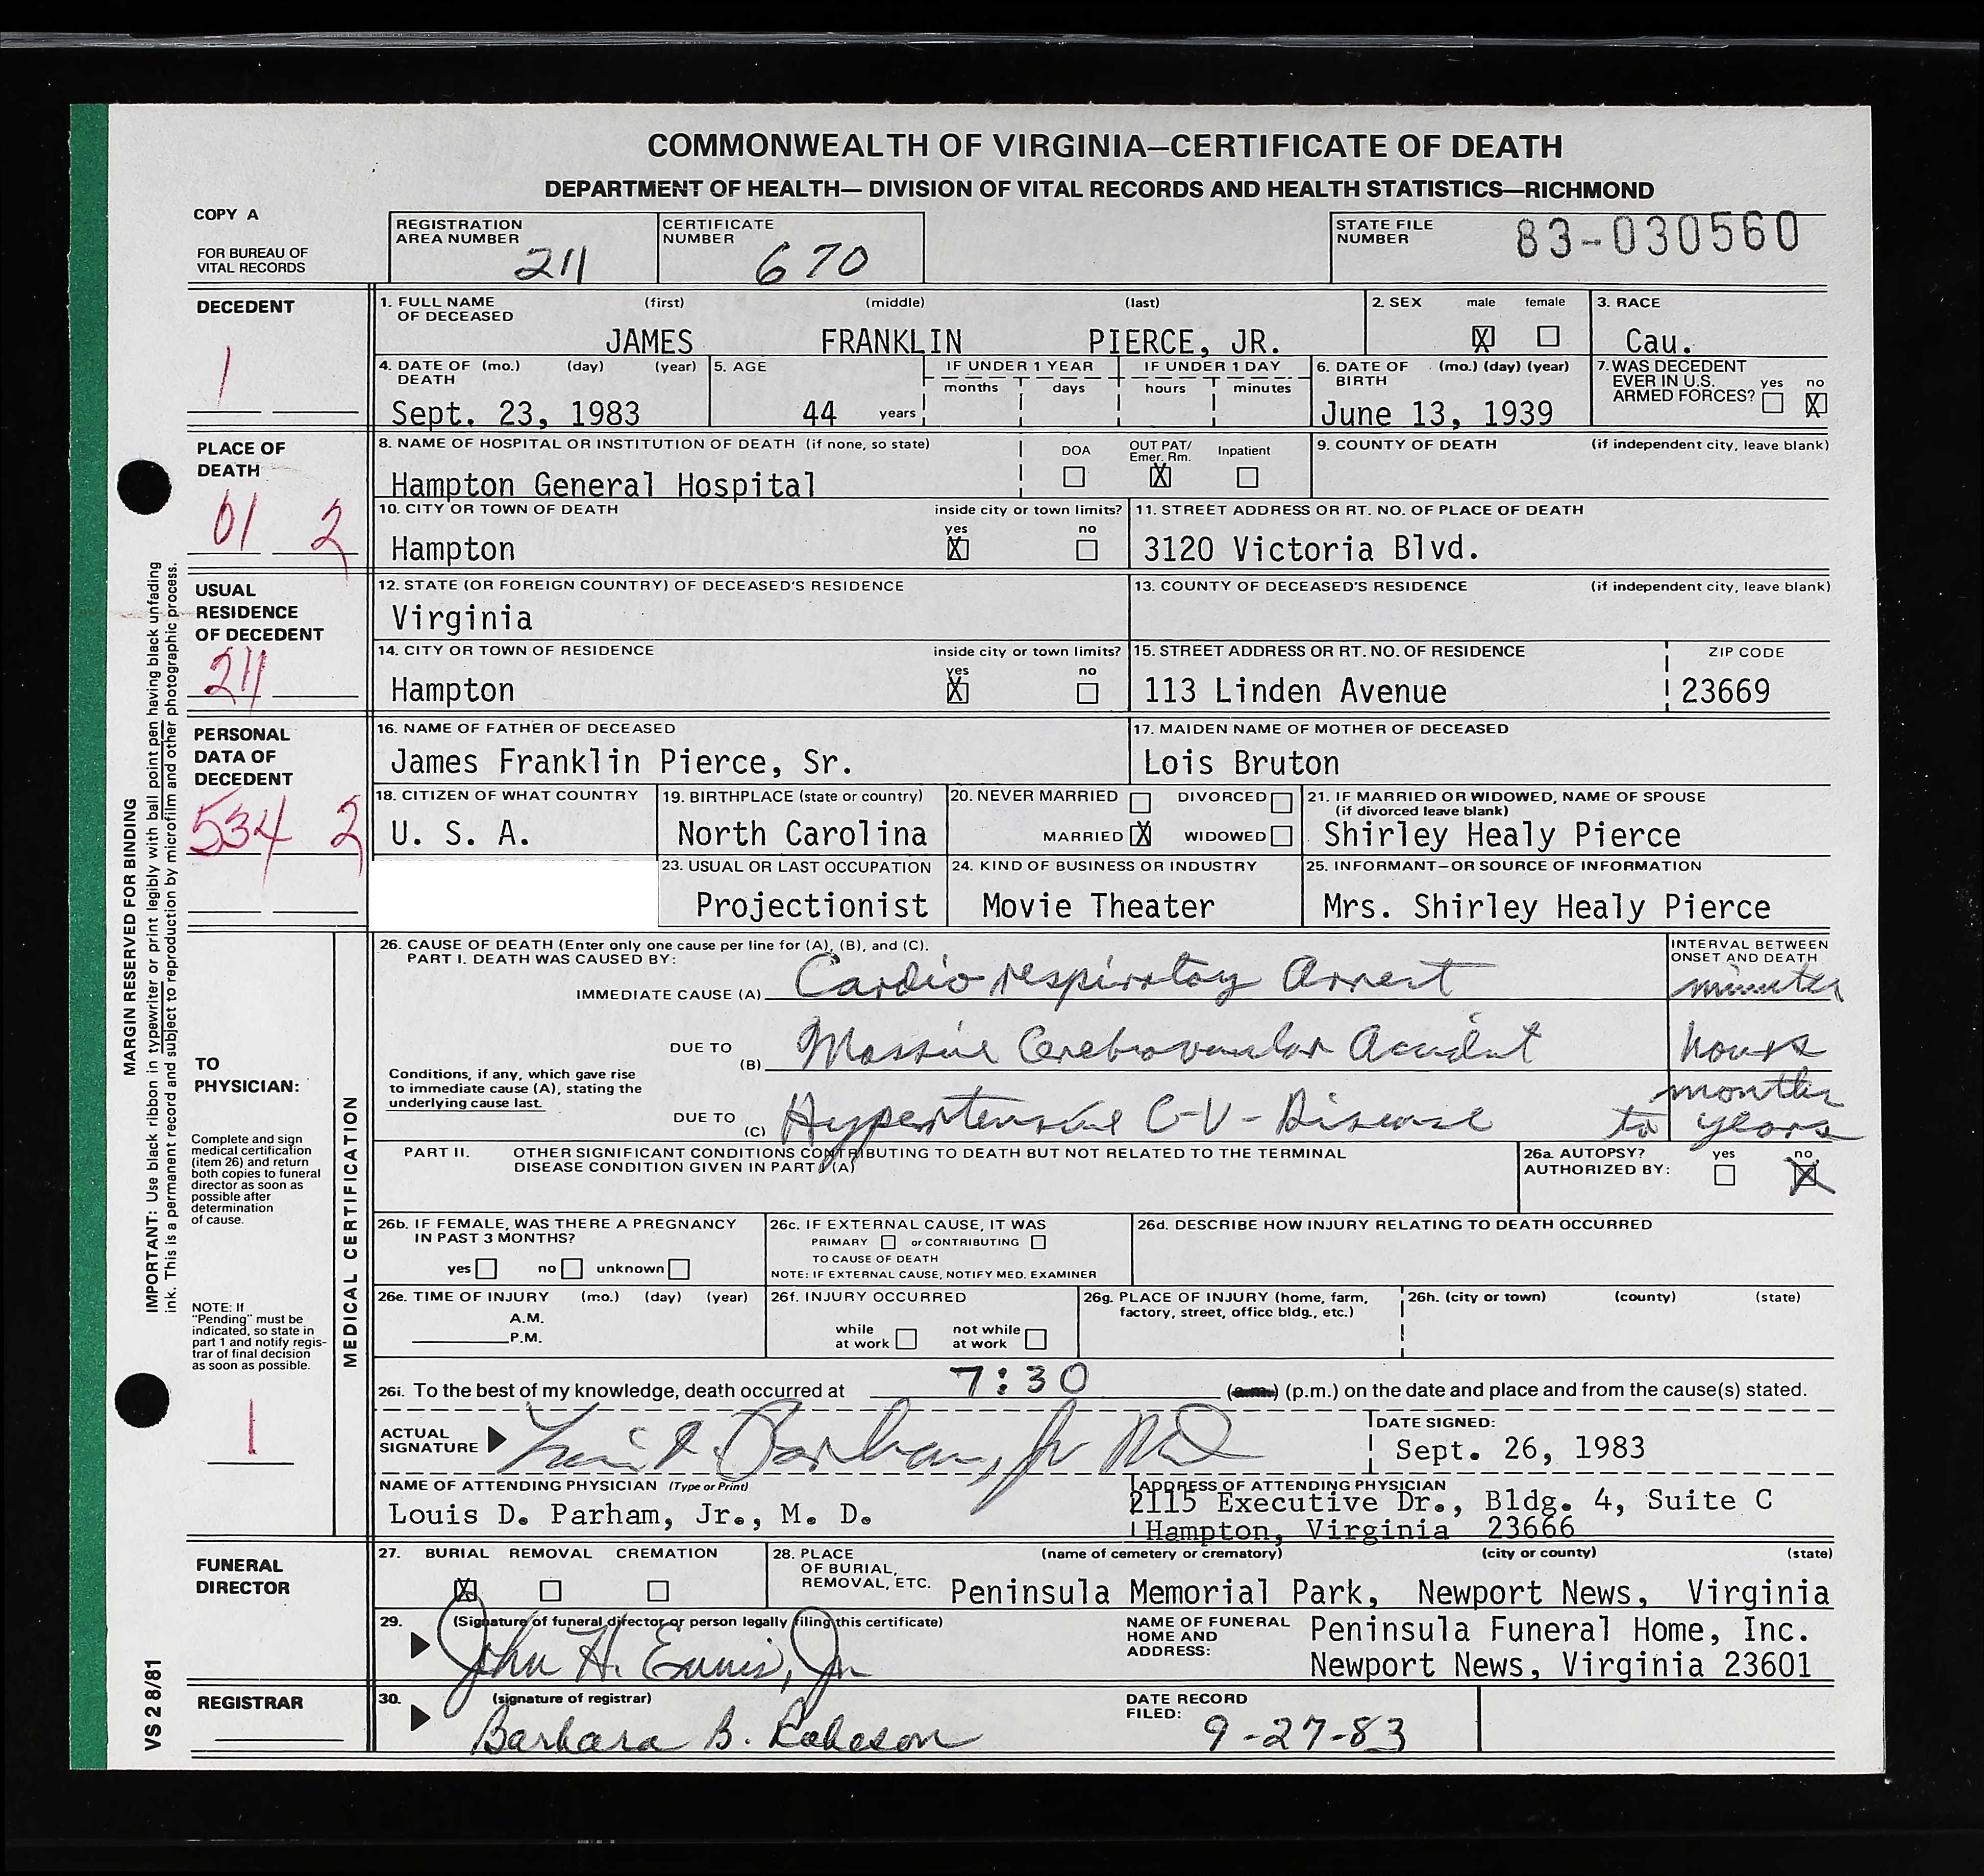 COMMONWEALTH OF VIRGINIA—CERTIFICATE OF DEATH
DEPARTMENT OF HEALTH— DIVISION OF VITAL RECORDS AND HEALTH STATISTICS—RICHMOND
COPY A
FOR BUREAU OF
VITAL RECORDS
REGISTRATION
AREA NUMBER 211
CERTIFICATE
NUMBER 670
STATE FILE
NUMBER 83-030560
DECEDENT
1
1. FULL NAME (first) (middle) (last)
OF DECEASED
JAMES FRANKLIN PIERCE, JR.
2. SEX male female
X
3. RACE
Cau.
4. DATE OF (mo.) (day) (year)
DEATH
Sept. 23, 1983
5. AGE
44 years
IF UNDER 1 YEAR
months days
IF UNDER 1 DAY
hours minutes
6. DATE OF (mo.) (day) (year)
BIRTH
June 13, 1939
7. WAS DECEDENT
EVER IN U.S. yes no
ARMED FORCES? X
PLACE OF
DEATH
01 2
8. NAME OF HOSPITAL OR INSTITUTION OF DEATH (if none, so state)
Hampton General Hospital
DOA
OUT PAT/
Emer. Rm.
X
Inpatient
9. COUNTY OF DEATH (if independent city, leave blank)
10. CITY OR TOWN OF DEATH inside city or town limits?
yes no
Hampton X
11. STREET ADDRESS OR RT. NO. OF PLACE OF DEATH
3120 Victoria Blvd.
USUAL
RESIDENCE
OF DECEDENT
211
12. STATE (OR FOREIGN COUNTRY) OF DECEASED'S RESIDENCE
Virginia
13. COUNTY OF DECEASED'S RESIDENCE (if independent city, leave blank)
14. CITY OR TOWN OF RESIDENCE inside city or town limits?
yes no
Hampton X
15. STREET ADDRESS OR RT. NO. OF RESIDENCE
113 Linden Avenue
ZIP CODE
23669
PERSONAL
DATA OF
DECEDENT
534 2
16. NAME OF FATHER OF DECEASED
James Franklin Pierce, Sr.
17. MAIDEN NAME OF MOTHER OF DECEASED
Lois Bruton
18. CITIZEN OF WHAT COUNTRY
U. S. A.
19. BIRTHPLACE (state or country)
North Carolina
20. NEVER MARRIED DIVORCED
MARRIED X WIDOWED
21. IF MARRIED OR WIDOWED, NAME OF SPOUSE
(if divorced leave blank)
Shirley Healy Pierce
23. USUAL OR LAST OCCUPATION
Projectionist
24. KIND OF BUSINESS OR INDUSTRY
Movie Theater
25. INFORMANT—OR SOURCE OF INFORMATION
Mrs. Shirley Healy Pierce
MARGIN RESERVED FOR BINDING
IMPORTANT: Use black ribbon in typewriter or print legibly with ball point pen having black unfading
ink. This is a permanent record and subject to reproduction by microfilm and other photographic process.
VS 2 8/81
TO
PHYSICIAN:
Complete and sign
medical certification
(item 26) and return
both copies to funeral
director as soon as
possible after
determination
of cause.
NOTE: If
"Pending" must be
indicated, so state in
part 1 and notify regis-
trar of final decision
as soon as possible.
1
MEDICAL CERTIFICATION
26. CAUSE OF DEATH (Enter only one cause per line for (A), (B), and (C).
PART I. DEATH WAS CAUSED BY:
INTERVAL BETWEEN
ONSET AND DEATH
IMMEDIATE CAUSE (A) Cardio respiratory Arrest minutes
DUE TO (B) Massive Cerebrovascular Accident hours
Conditions, if any, which gave rise
to immediate cause (A), stating the
underlying cause last.
DUE TO (C) Hypertensive C-V-Disease months to years
PART II. OTHER SIGNIFICANT CONDITIONS CONTRIBUTING TO DEATH BUT NOT RELATED TO THE TERMINAL
DISEASE CONDITION GIVEN IN PART I (A)
26a. AUTOPSY? yes no
AUTHORIZED BY: X
26b. IF FEMALE, WAS THERE A PREGNANCY
IN PAST 3 MONTHS?
yes no unknown
26c. IF EXTERNAL CAUSE, IT WAS
PRIMARY or CONTRIBUTING
TO CAUSE OF DEATH
NOTE: IF EXTERNAL CAUSE, NOTIFY MED. EXAMINER
26d. DESCRIBE HOW INJURY RELATING TO DEATH OCCURRED
26e. TIME OF INJURY (mo.) (day) (year)
A.M.
P.M.
26f. INJURY OCCURRED
while at work not while at work
26g. PLACE OF INJURY (home, farm,
factory, street, office bldg., etc.)
26h. (city or town) (county) (state)
26i. To the best of my knowledge, death occurred at 7:30 (a.m.) (p.m.) on the date and place and from the cause(s) stated.
ACTUAL
SIGNATURE Louis D. Parham, Jr MD
DATE SIGNED:
Sept. 26, 1983
NAME OF ATTENDING PHYSICIAN (Type or Print)
Louis D. Parham, Jr., M. D.
ADDRESS OF ATTENDING PHYSICIAN
2115 Executive Dr., Bldg. 4, Suite C
Hampton, Virginia 23666
FUNERAL
DIRECTOR
27. BURIAL REMOVAL CREMATION
X
28. PLACE (name of cemetery or crematory) (city or county) (state)
OF BURIAL,
REMOVAL, ETC. Peninsula Memorial Park, Newport News, Virginia
29. (Signature of funeral director or person legally filing this certificate)
John H. Ennis, Jr
NAME OF FUNERAL
HOME AND
ADDRESS:
Peninsula Funeral Home, Inc.
Newport News, Virginia 23601
REGISTRAR
30. (signature of registrar)
Barbara B.
DATE RECORD
FILED: 9-27-83